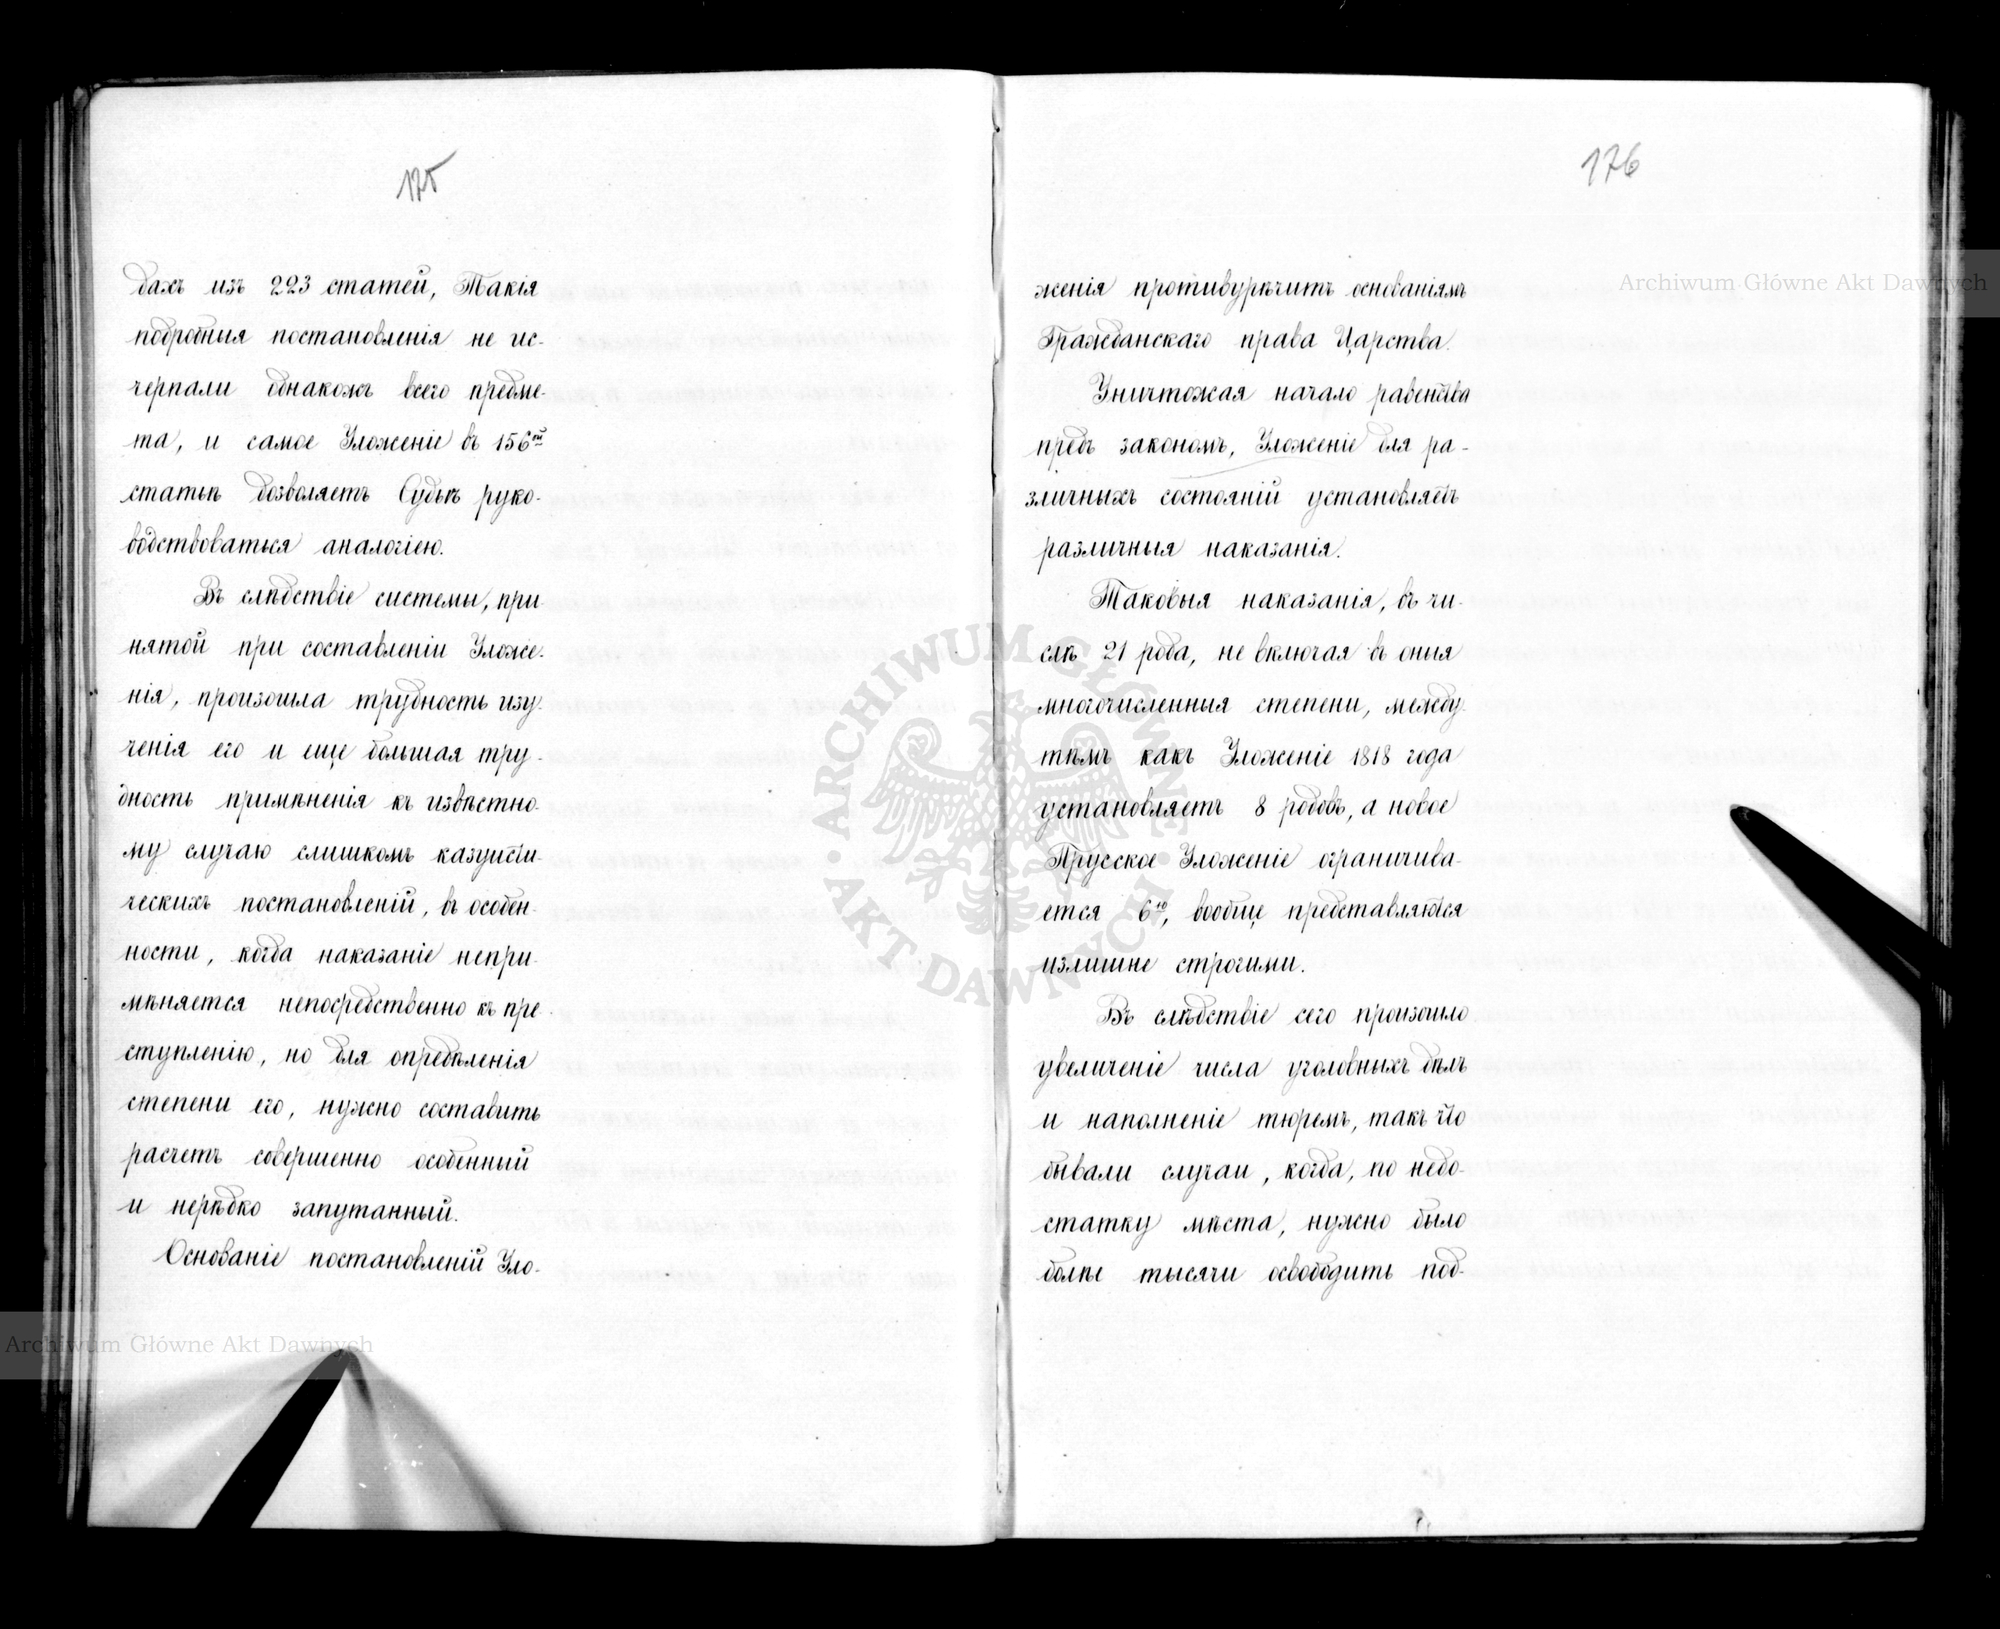 175
дахъ изъ 223 статей, Такія
подробныя постановленія не ис-
черпали однакожъ всего предме-
та, и самое Уложеніе въ 156ой
статьѣ дозволяетъ Судьѣ руко-
водствоваться аналогіею.
Въ слѣдствіе системы, при-
нятой при составленіи Уложе-
нія, произошла трудность изу-
ченія его и еще большая тру-
дность примѣненія къ извѣстно-
му случаю слишкомъ казуисти-
ческихъ постановленій, въ особен-
ности, когда наказаніе непри-
мѣняется непосредственно къ пре-
ступленію, но для опредѣленія
степени его, нужно составить
расчетъ совершенно особенный
и нерѣдко запутанный.
Основаніе постановленій Уло-
176
женія противурѣчитъ основаніямъ
Гражданскаго права Царства.
Уничтожая начало равенства
предъ закономъ, Уложеніе для ра-
зличныхъ состояній установляетъ
различныя наказанія.
Таковыя наказанія, въ чи-
слѣ 21 рода, не включая въ оныя
многочисленныя степени, между
тѣмъ какъ Уложеніе 1818 года
установляетъ 8 родовъ, а новое
Прусское Уложеніе ограничива-
ется 6ю, вообще представляются
излишне строгими.
Въ слѣдствіе сего произошло
увеличеніе числа уголовныхъ дѣлъ
и наполненіе тюремъ, такъ что
бывали случаи, когда, по недо-
статку мѣста, нужно было
болѣе тысячи освободить под-
Archiwum Główne Akt Dawnych
Archiwum Główne Akt Dawnych
ARCHIWUM GŁÓWNE • AKT DAWNYCH •